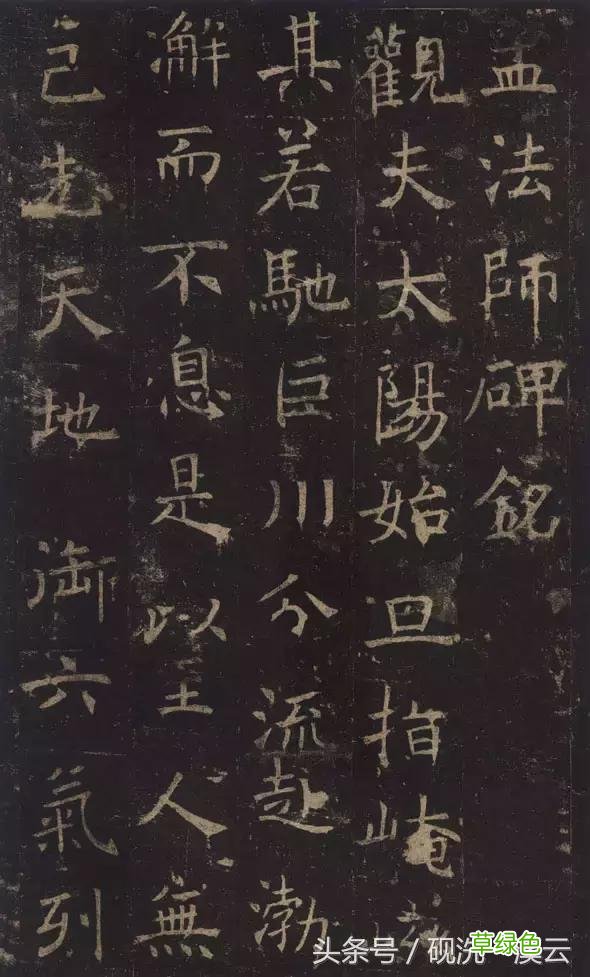 孟法師碑銘
觀夫太陽始旦指崦
其若馳巨川分流赴渤
澥而不息是以至人無
己先天地御六氣列
头条号／砚洗
草绿色